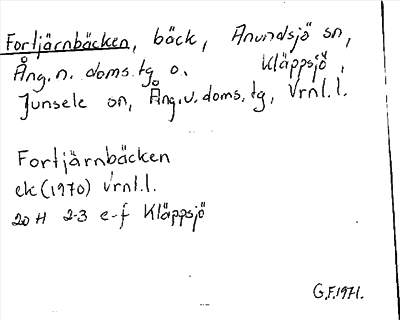 Fortjärnbäcken, bäck, Anundsjö sn,
Ång.n. doms.tg o. Kläppsjö,
Junsele sn, Ång.v. doms.tg, Vrnl.l.
Fortjärnbäcken
ek (1970) Vrnl.l.
20 H 2-3 e-f Kläppsjö
G.F. 1971.